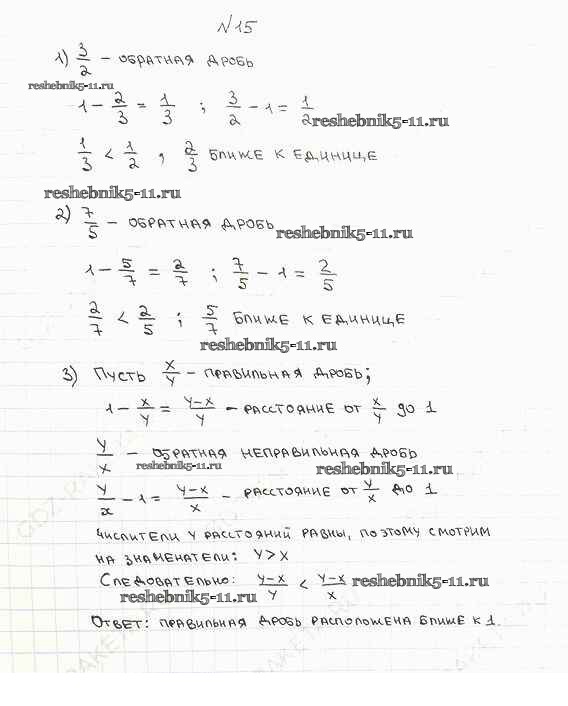 №15
1) 3/2 – ОБРАТНАЯ ДРОБЬ
reshebnik5-11.ru
1 – 2/3 = 1/3 ; 3/2 – 1 = 1/2
reshebnik5-11.ru
1/3 < 1/2 , 2/3 БЛИЖЕ К ЕДИНИЦЕ
reshebnik5-11.ru
2) 7/5 – ОБРАТНАЯ ДРОБЬ
reshebnik5-11.ru
1 – 5/7 = 2/7 ; 7/5 – 1 = 2/5
2/7 < 2/5 ; 5/7 БЛИЖЕ К ЕДИНИЦЕ
reshebnik5-11.ru
3) ПУСТЬ x/y – ПРАВИЛЬНАЯ ДРОБЬ;
1 – x/y = y–x/y – РАССТОЯНИЕ ОТ x/y ДО 1
y/x – ОБРАТНАЯ НЕПРАВИЛЬНАЯ ДРОБЬ
reshebnik5-11.ru reshebnik5-11.ru
y/x – 1 = y–x/x – РАССТОЯНИЕ ОТ y/x ДО 1
ЧИСЛИТЕЛИ У РАССТОЯНИЙ РАВНЫ, ПОЭТОМУ СМОТРИМ
НА ЗНАМЕНАТЕЛИ: y > x
СЛЕДОВАТЕЛЬНО: y–x/y < y–x/x reshebnik5-11.ru
reshebnik5-11.ru
ОТВЕТ: ПРАВИЛЬНАЯ ДРОБЬ РАСПОЛОЖЕНА БЛИЖЕ К 1.